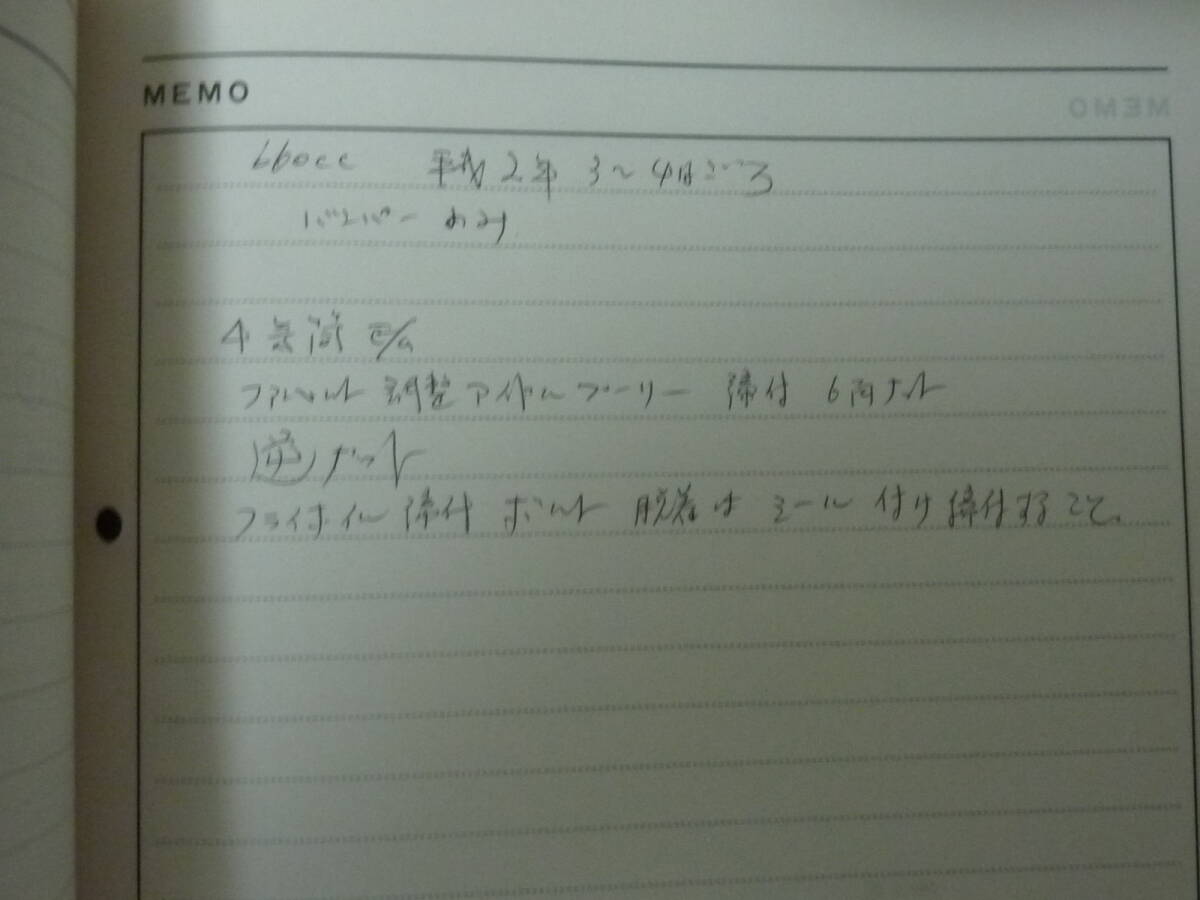 MEMO
660cc 平成2年 3〜4月ごろ
バンパー のみ
4気筒 E/G
ファンベルト 調整アイドルプーリー 締付 6角ナット
逆ナット
フライホイル 締付 ボルト 脱着は シール 付け 締付すること。